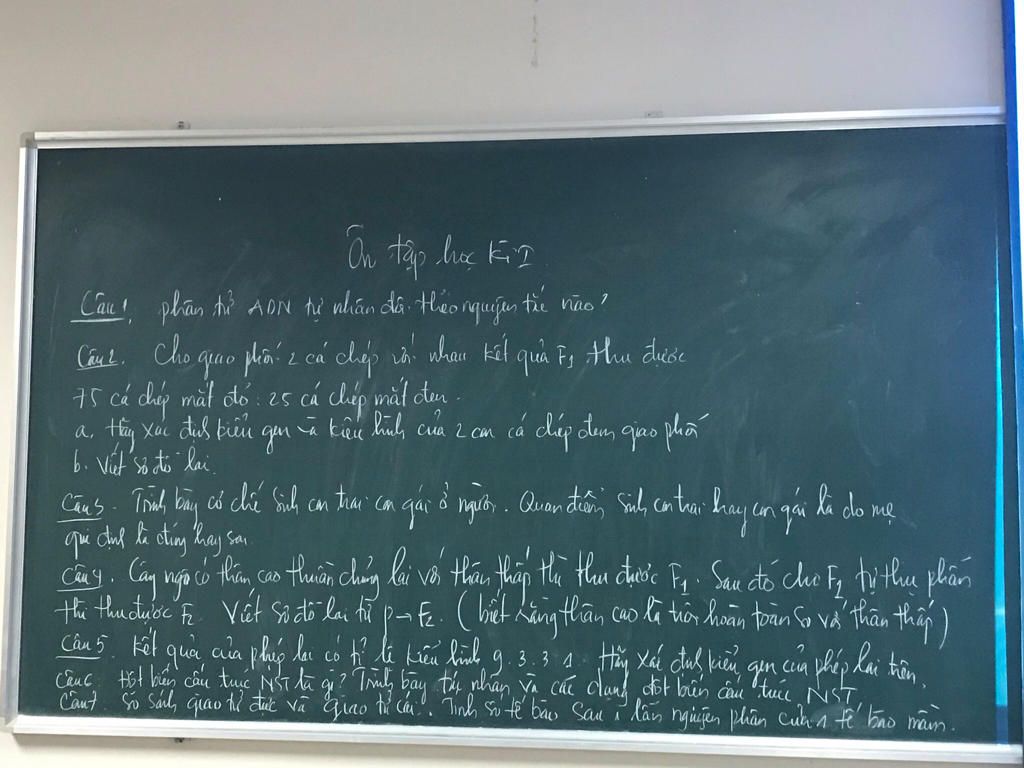 Ôn tập học kì I
Câu 1, phân tử ADN tự nhân đôi theo nguyên tắc nào?
Câu 2. Cho giao phối 2 cá chép với nhau kết quả F1 thu được
75 cá chép mắt đỏ : 25 cá chép mắt đen.
a, Hãy xác định kiểu gen và kiểu hình của 2 con cá chép đem giao phối
b. Viết sơ đồ lai.
Câu 3. Trình bày cơ chế sinh con trai con gái ở người. Quan điểm sinh con trai hay con gái là do mẹ
qui định là đúng hay sai
Câu 4. Cây ngô có thân cao thuần chủng lai với thân thấp thì thu được F1. Sau đó cho F1 tự thụ phấn
thì thu được F2. Viết sơ đồ lai từ p → F2. (biết rằng thân cao là trội hoàn toàn so với thân thấp)
Câu 5. Kết quả của phép lai có tỉ lệ kiểu hình 9.3.3.1. Hãy xác định kiểu gen của phép lai trên.
Câu 6. Đột biến cấu trúc NST là gì? Trình bày tác nhân và các dạng đột biến cấu trúc NST
Câu 7 So sánh giao tử đực và giao tử cái. Tính số tế bào sau 1 lần nguyên phân của 1 tế bào mầm.